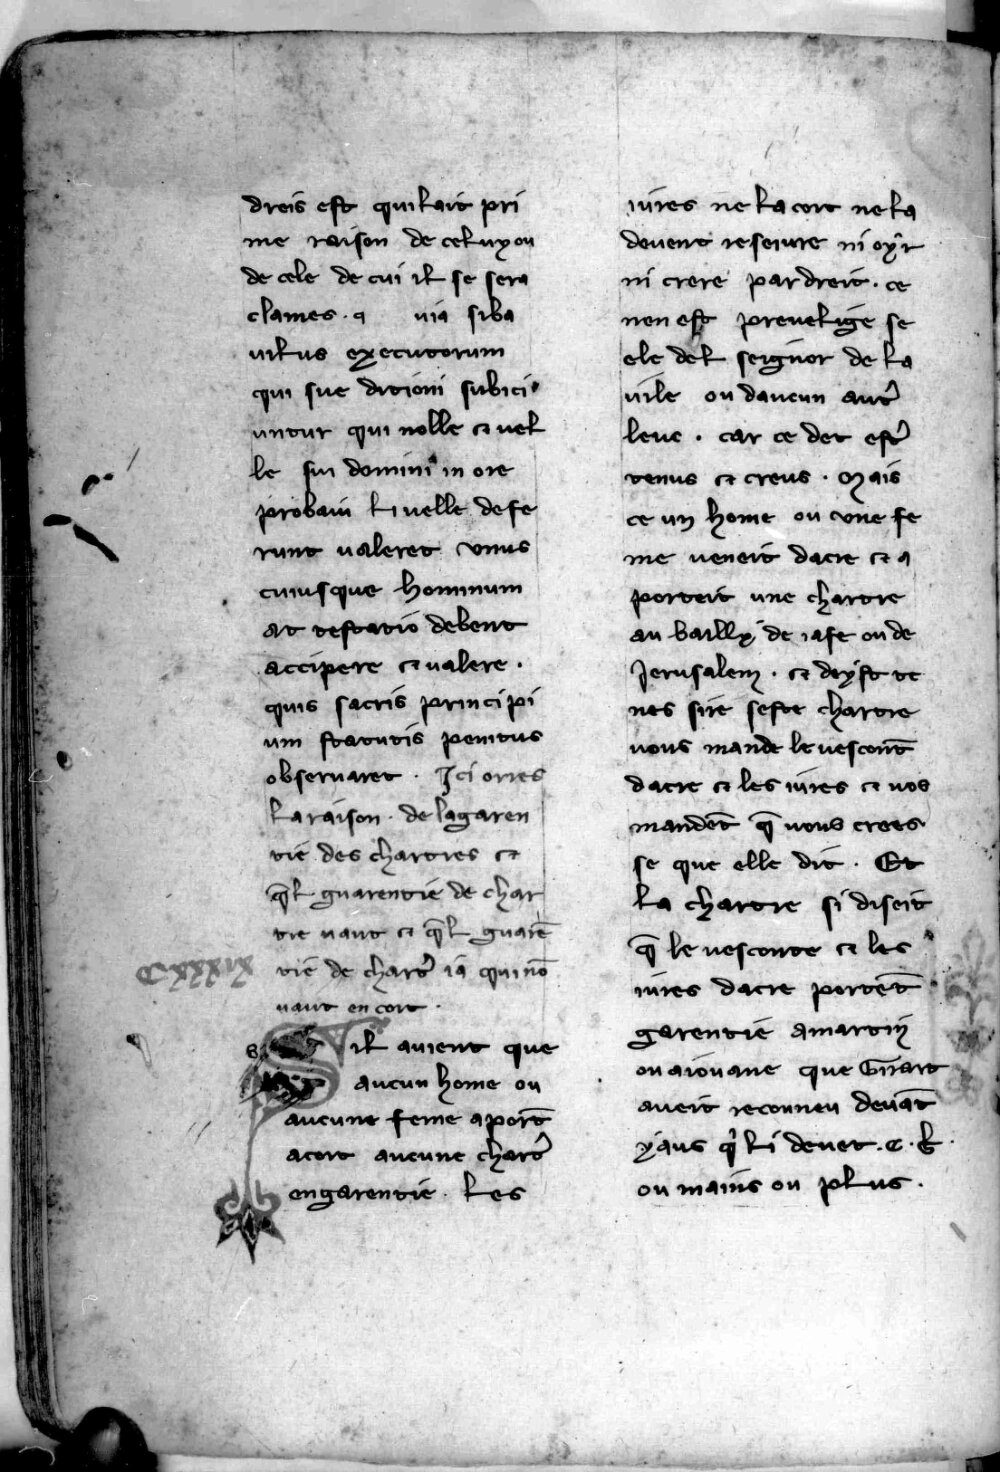 dreis est quil ait pri
me raison de celuy ou
de cele de cui il se sera
clames. q uia siba
uilus executorum
qui sue ditioni subici
untur qui nolle et uel
le sui domini in ore
probaui li uelle defe
runt ualeret vnus
cuiusque hominum
at testatio debent
accipere et ualere.
quis sacris principi
um statutis penitus
obseruaret. Ici orres
la raison de lagaren
tie des chartres et
q̄l guarentie de char
tre uaut et q̄l guarē
tie de chart̉ ia qui nō
uaut en cort.
Sil auient que
aucun home ou
aucune feme aport̄
acort aucune chart̉
engarentie. les
iures ne la cort ne la
deuent reseiure ni oyr
ni crere par dreit. ce
nen est preuelige se
ele del seignor de la
uile ou daucun aut̉
leue. car ce det est̉
tenus et creus. Mais
ce un home ou vne fe
me ueneit dacre et a
porteit une chartre
au bailly de iafe ou de
Jerusalem. et dyst te
nes sire seste chartre
uous mande le uescont̄
dacre et les iures et uos
mandēt q̄ uous crees
se que elle dit. Et
la chartre si diseit
q̄ le uesconte et les
iures dacre portēt
garentie amartin
ou aiouane que Girart
aueit reconneu deuāt
yaus q̉ li deuet. c. b.
ou mains ou plus.